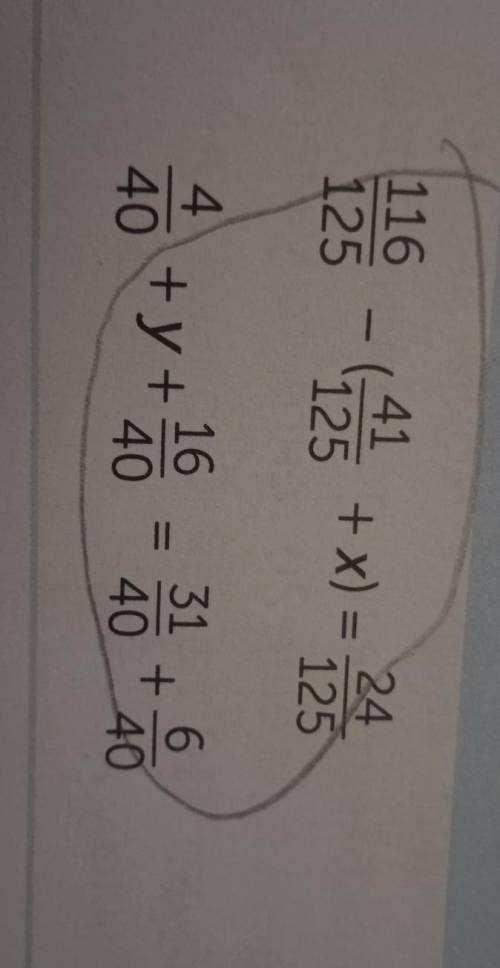 116/125 − (41/125 + x) = 24/125
4/40 + y + 16/40 = 31/40 + 6/40